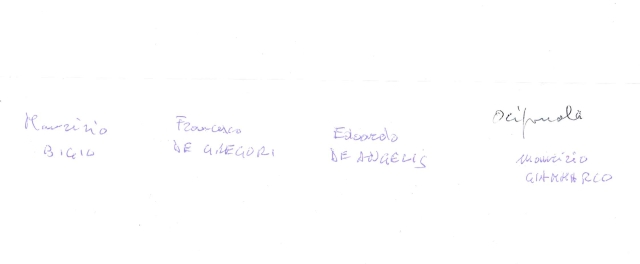 Maurizio
BIGIO
Francesco
DE GREGORI
Edoardo
DE ANGELIS
Maurizio
GIAMMARCO